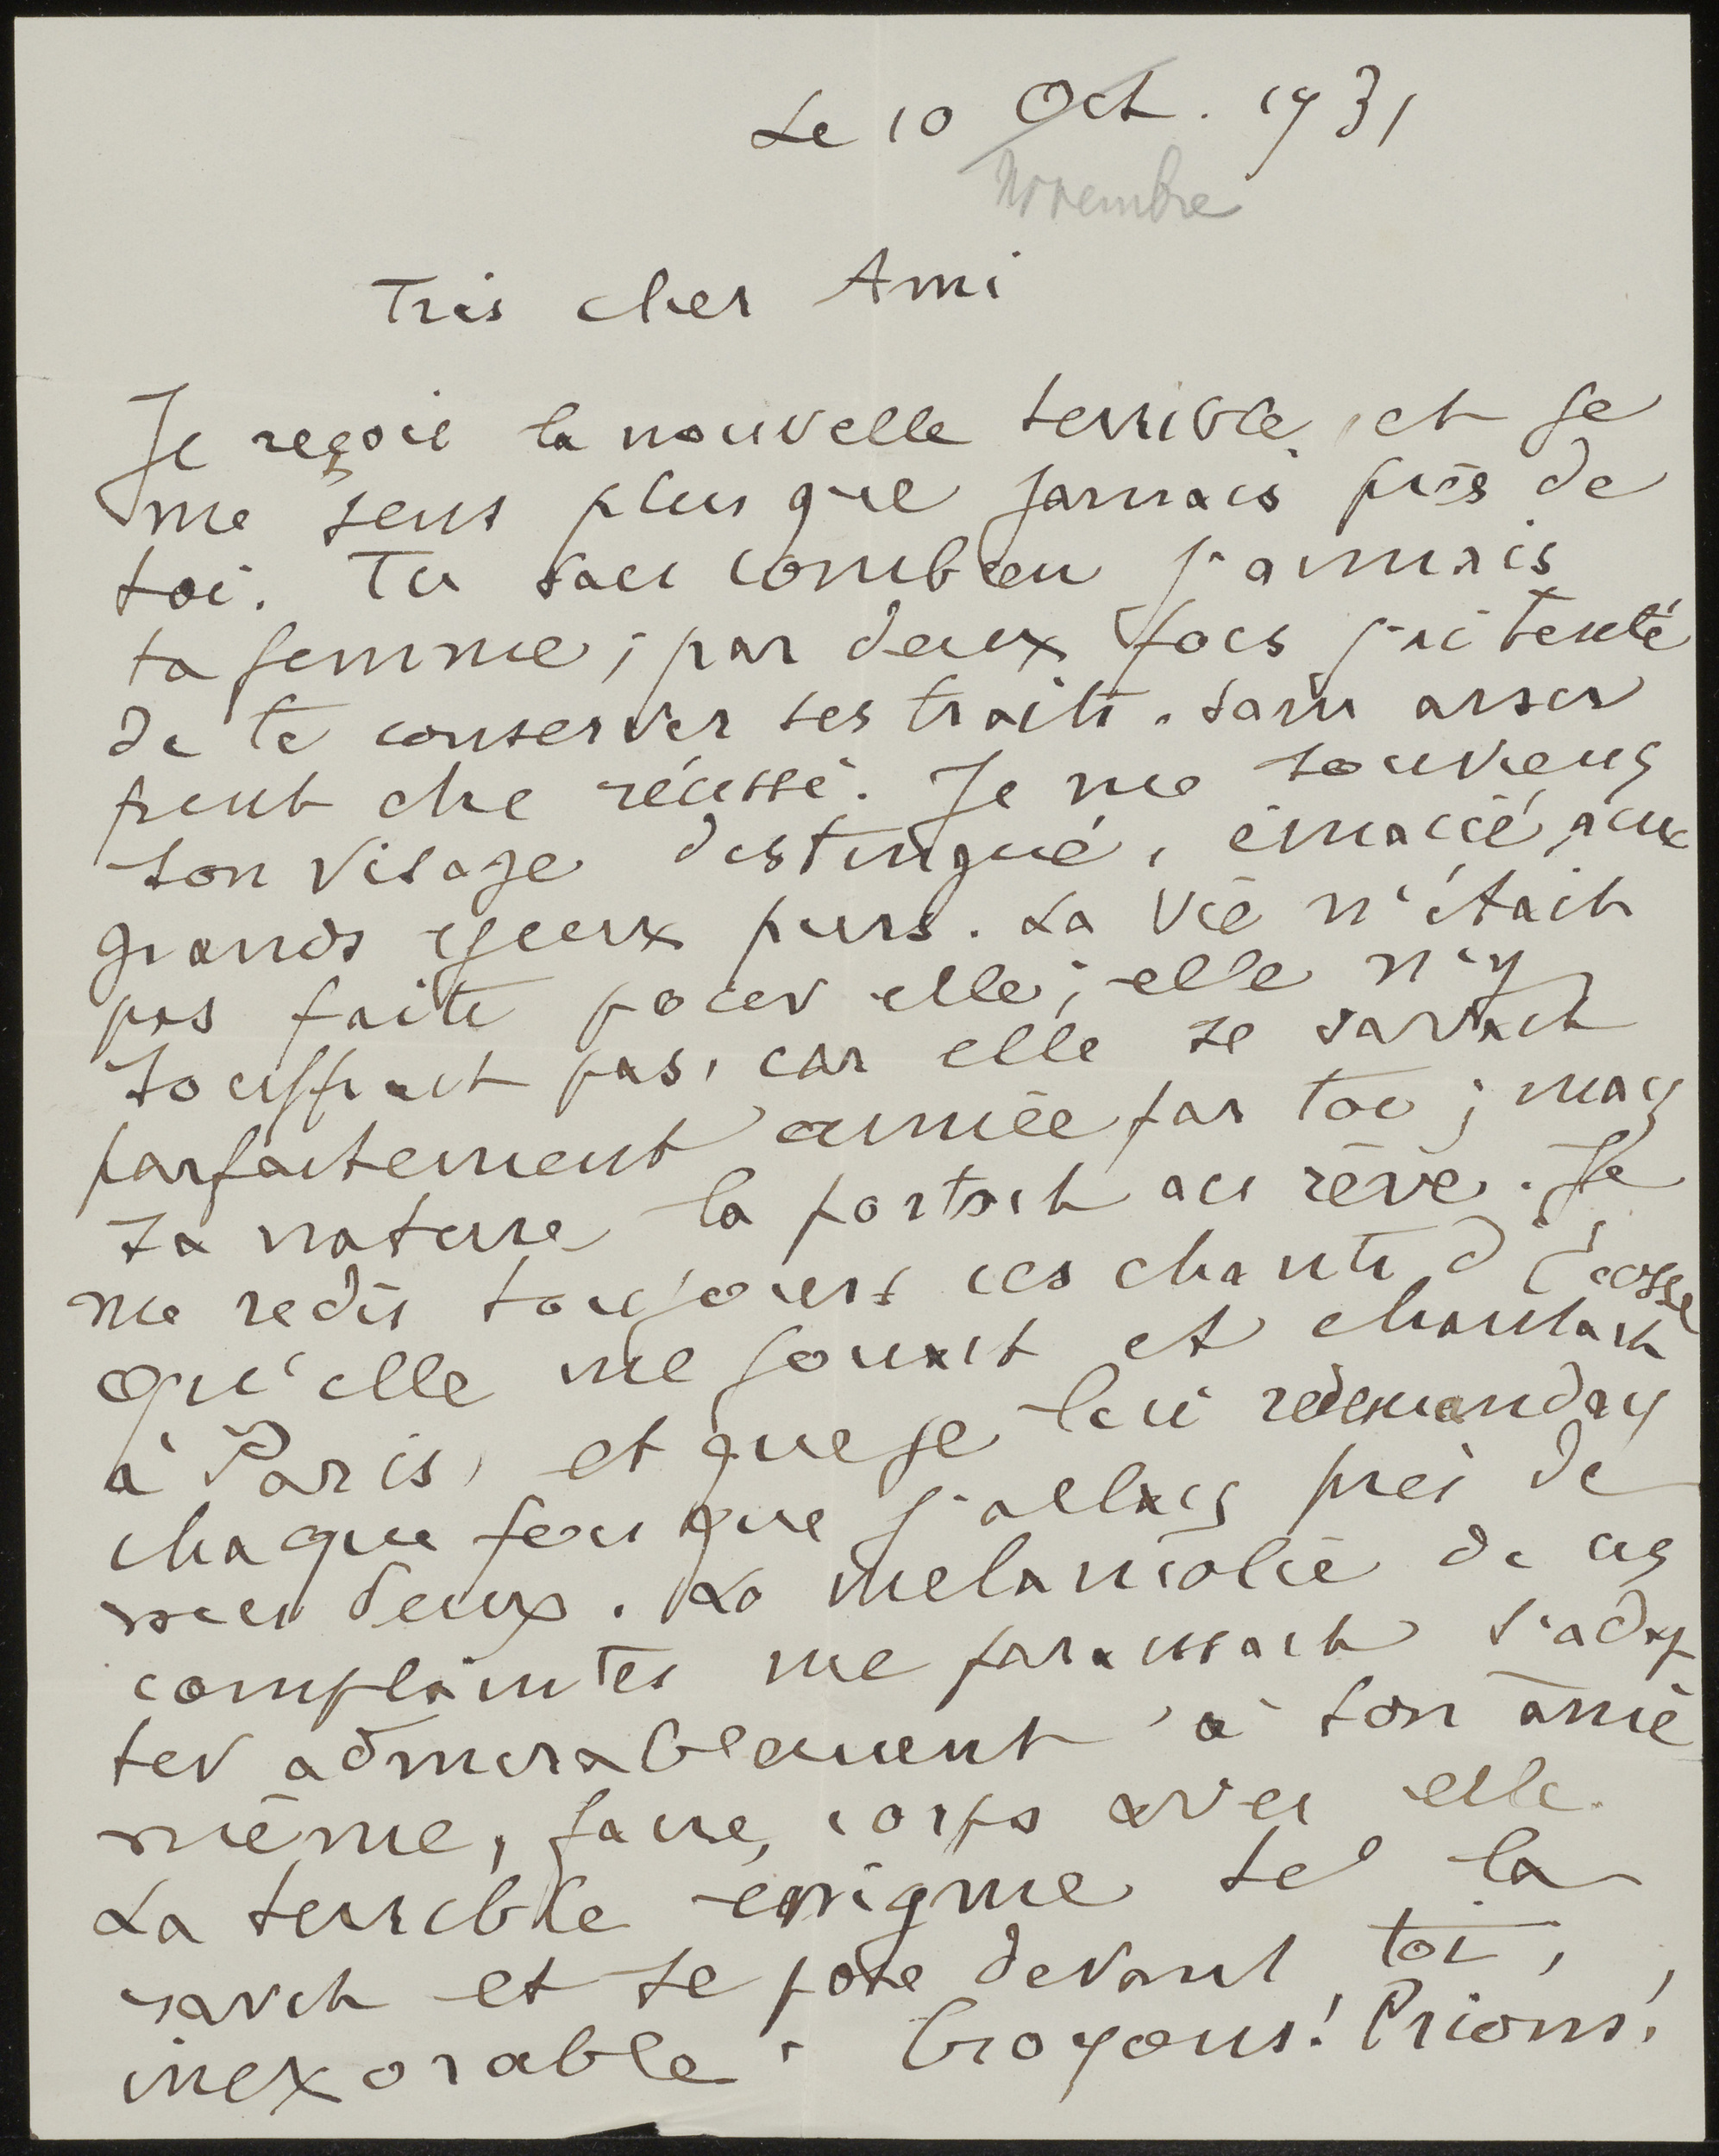 Le 10 Oct. 1931
Novembre
Très cher Ami
Je reçois la nouvelle terrible, et je
me sens plus que jamais près de
toi. Tu sais combien j'aimais
ta femme; par deux fois j'ai tenté
de te conserver ses traits. sans assez
peut être réussi. Je me souviens
son visage distingué, émacié, aux
grands yeux purs. La vie n'était
pas faite pour elle; elle n'y
souffrait pas, car elle se savait
parfaitement aimée par toi; mais
sa nature la portait au rêve. Je
me redis toujours ces chants d'Écosse
qu'elle me jouait et chantait
à Paris, et que je lui redemandais
chaque fois que j'allais près de
vous deux. La mélancolie de ces
complaintes me paraissait s'adap
ter admirablement à son âme
même, faire corps avec elle.
La terrible énigme te la
ravit et se pose devant toi,
inexorable. Croyons! Prions!